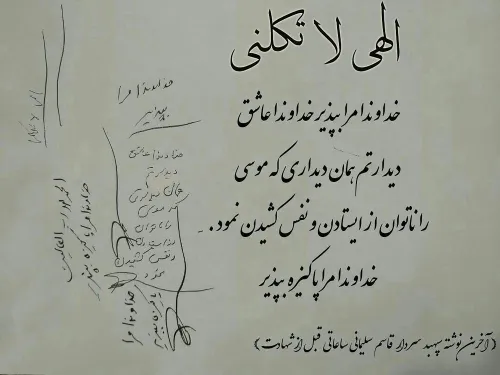 الهی لا تکلنی
خداوندا مرا بپذیر خداوندا عاشق
دیدارتم همان دیداری که موسی
را ناتوان از ایستادن و نفس کشیدن نمود.
خداوندا مرا پاکیزه بپذیر
(آخرین نوشته سپهبد سردار قاسم سلیمانی ساعاتی قبل از شهادت)
الهی لا تکلنی
خداوندا مرا
بپذیر
خداوندا عاشق
دیدارتم
همان دیداری
که موسی
را ناتوان
از ایستادن
و نفس کشیدن
نمود
خداوندا مرا
پاکیزه بپذیر
الحمدلله رب العالمین
خداوندا مرا پاکیزه بپذیر